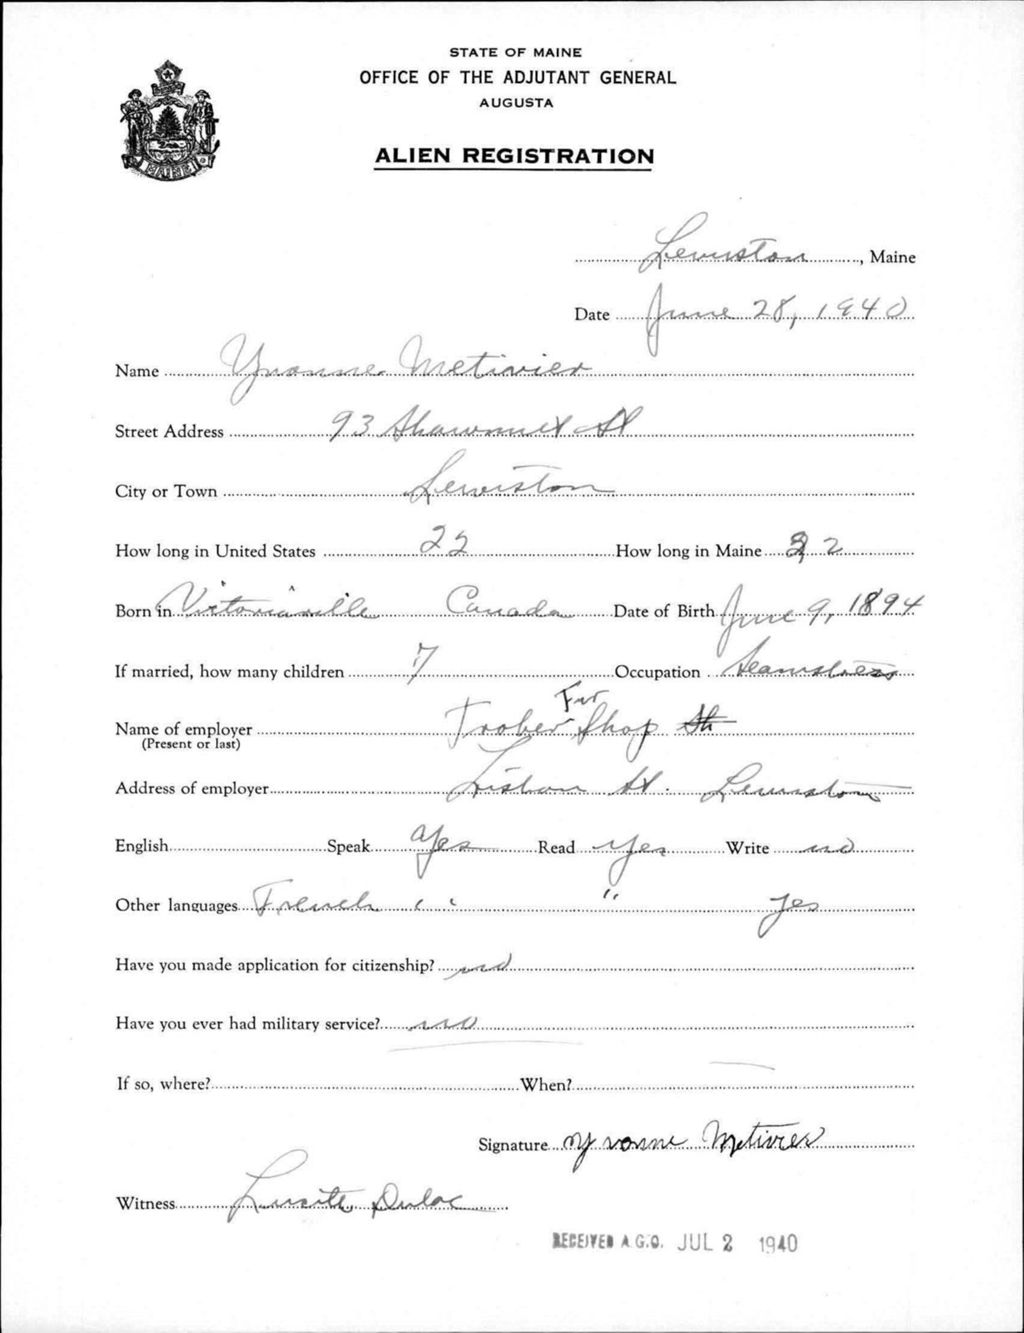 STATE OF MAINE
OFFICE OF THE ADJUTANT GENERAL
AUGUSTA
ALIEN REGISTRATION
MAINE
Lewiston, Maine
Date June 28, 1940
Name Yvonne Metivier
Street Address 93 Shawmut St
City or Town Lewiston
How long in United States 22 How long in Maine 22
Born in Victoriaville Canada Date of Birth June 9, 1894
If married, how many children 7 Occupation Seamstress
Name of employer Trober Fur Shop
(Present or last)
Address of employer Lisbon St. Lewiston
English Speak yes Read yes Write no
Other languages French " " yes
Have you made application for citizenship? no
Have you ever had military service? no
If so, where? When?
Signature Yvonne Metivier
Witness Dulac
RECEIVED A.G.O. JUL 2 1940